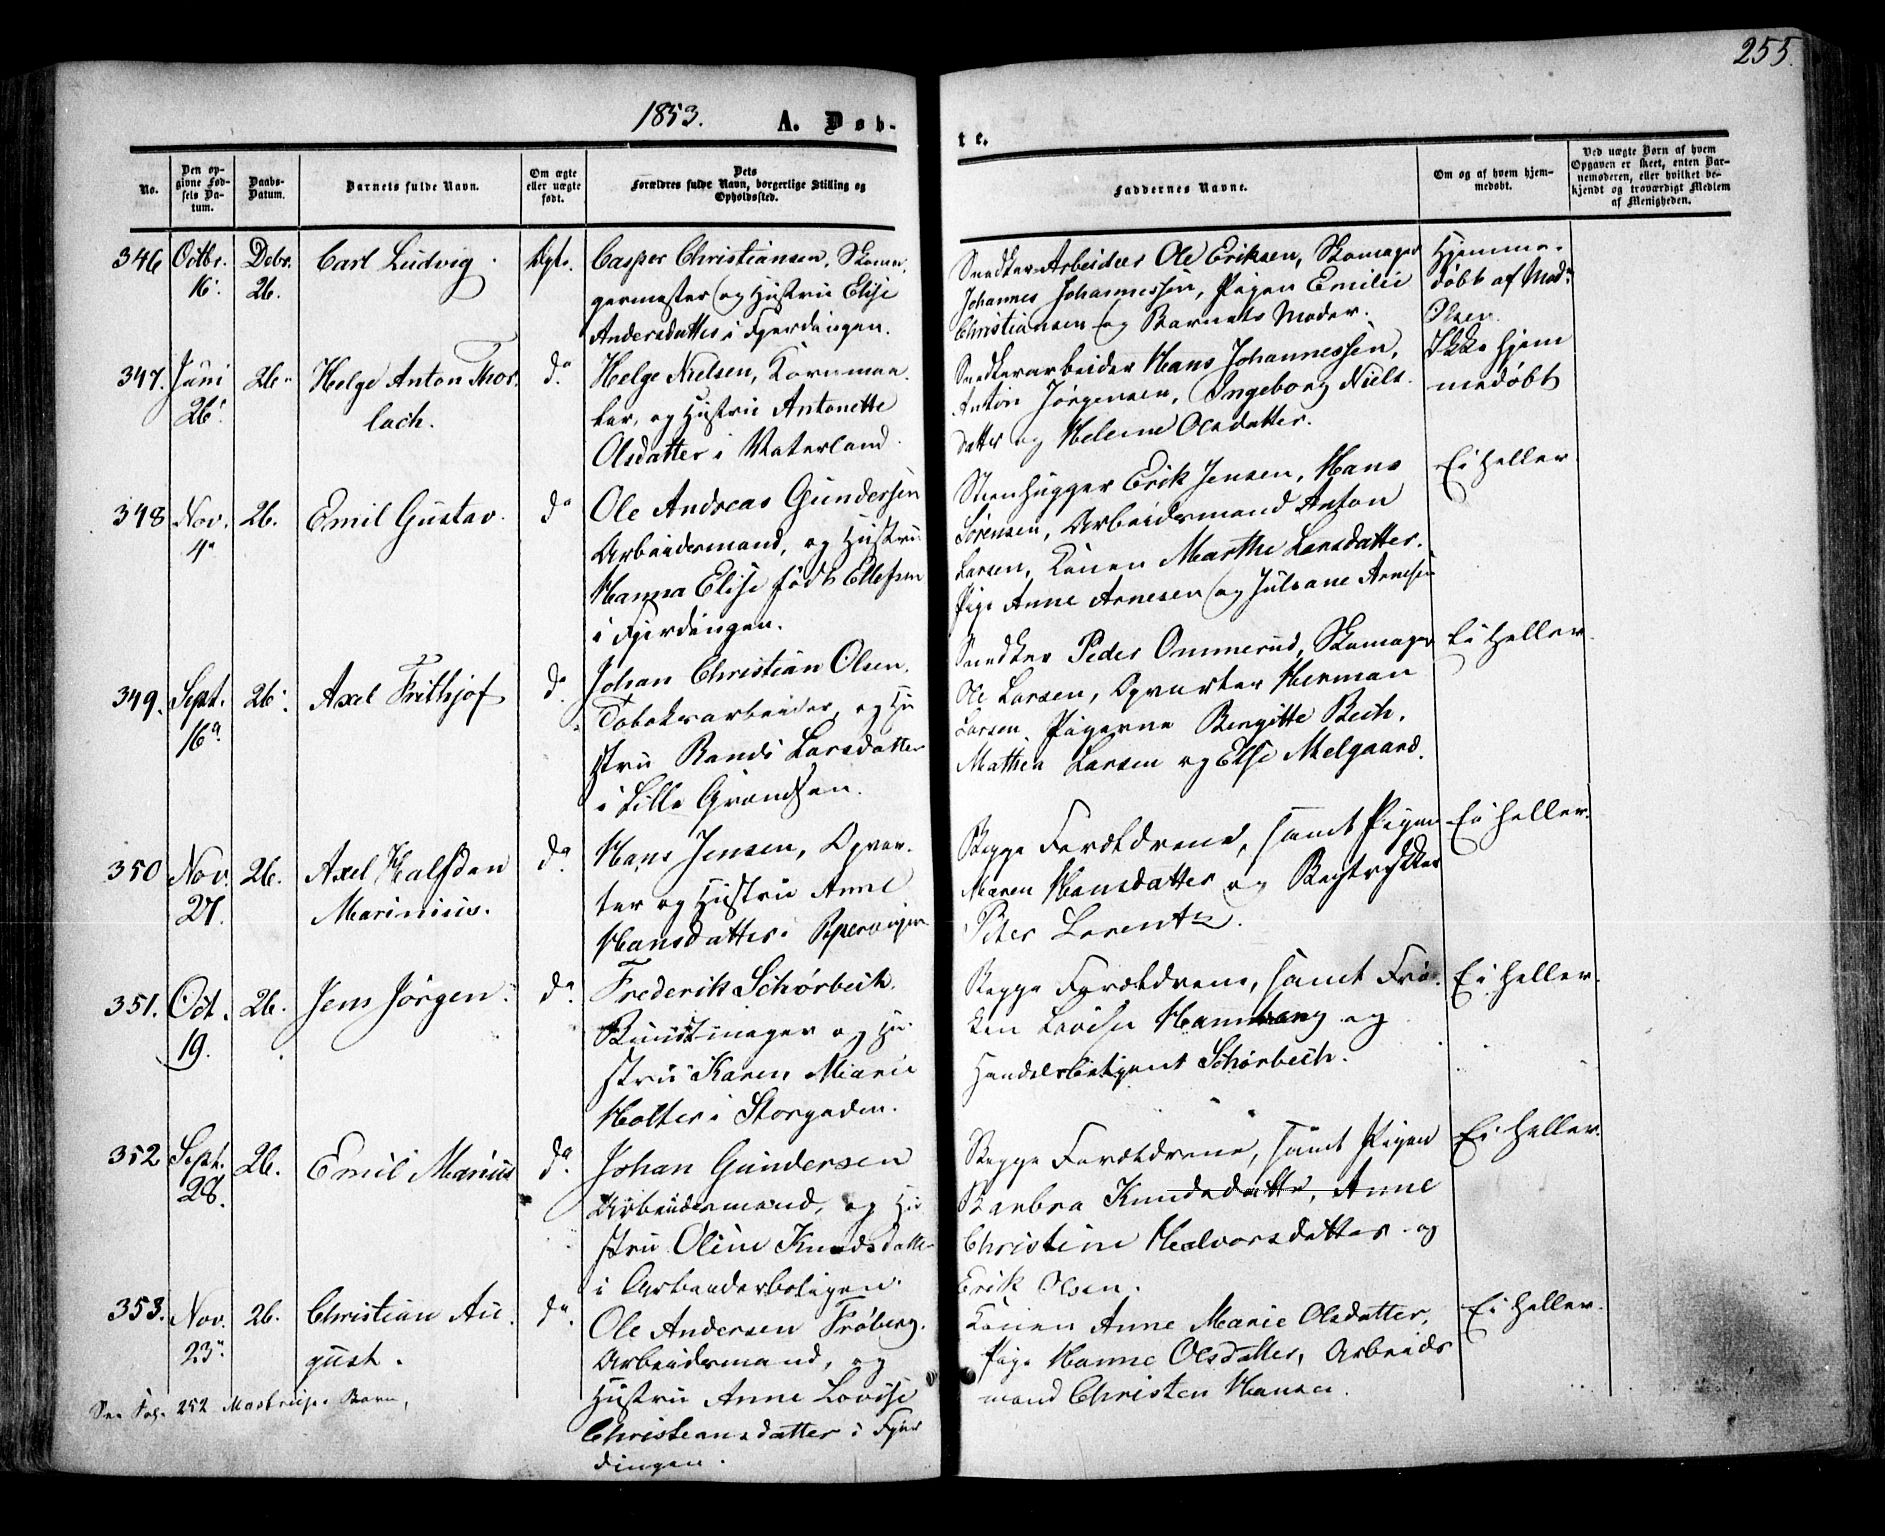 255.
1853.
A. Døb-
te.
No.
Den op-
givne Fød-
sels Da-
tum.
Daabs-
Datum.
Barnets fulde Navn.
Om ægte
eller uægte
født.
Dets
Forældres fulde Navn, borgerlige Stilling og
Opholdssted.
Faddernes Navne.
Om og af hvem hjem-
medøbt.
Ved uægte Børn af hvem
Opgaven er skeet, enten Bar-
nemoderen, eller hvilket be-
kjendt og troværdigt Medlem
af Menigheden.
346 Octbr. 16. Debr. 26. Carl Ludvig. Ægte.
Casper Christiansen, Skoma-
germester og Hustru Elise
Andersdatter i Fjerdingen.
Snedker Arbeider Ole Eriksen, Skomager
Johannes Johannessen, Pigen Emilie
Christiansen og Barnets Moder.
Hjemme-
døbt af Mad.
Olsen.
347. Juni 26. 26. Helge Anton Thor-
lach. do
Helge Nielsen, Kornmaa-
ler, og Hustru Antonette
Olsdatter i Vaterland.
Snedkerarbeider Hans Johannessen,
Anton Jørgensen, Ingeborg Niels-
datter og Helene Olsdatter.
Ikke hjem
medøbt
348 Nov. 4. 26. Emil Gustav. do
Ole Andreas Gundersen
Arbeidsmand, og Hustru
Hanna Elise født Ellefsen
i Fjerdingen.
Steenhugger Erik Jensen, Hans
Sørensen, Arbeidsmand Anton
Larsen, Konen Marthe Larsdatter.
Pige Anne Arnesen og Juliane Arnesen
Ei heller.
349. Sept. 16. 26. Axel Frithjof do.
Johan Christian Olsen.
Tobaksarbeider, og Hu
stru Randi Larsdatter
i Lille Grændsen.
Snedker Peder Ommerud, Skomager
Ole Larsen, Opvarter Herman
Larsen, Pigerne Bergitte Bech,
Mathea Larsen og Else Melgaard.
Ei heller.
350 Nov. 27. 26. Axel Halfdan
Marinius. do.
Hans Jensen, Opvar-
ter og Hustru Anne
Hansdatter i Pipervigen
Begge Forældrene, samt Pigen
Maren Hansdatter og Bogtrykker
Peter Lorentz.
Ei heller.
351. Oct. 19. 26. Jens Jørgen. do.
Frederik Schørbech.
Buntmager og Hu-
stru Karen Marie
Holter i Storgaden.
Begge Forældrene, samt Frø-
ken Lovise Hamberg og
Handelsbetjent Schørbech.
Ei heller.
352 Sept. 28. 26. Emil Marius do.
Johan Gundersen
Arbeidsmand, og Hu
stru Oline Knudsdatter
i Arbeiderboligen.
Begge Forældrene, samt Pigen
Barbra Knudsdatter, Anne
Christine Halvorsdatter og
Erik Olsen.
Ei heller.
353. Nov. 23. 26. Christian Au-
gust. do.
Ole Andersen Frøberg.
Arbeidsmand, og
Hustru Anne Lovise
Christiansdatter i Fjer
dingen.
Konen Anne Marie Olsdatter,
Pige Hanne Olsdatter, Arbeids
mand Christen Hansen.
Ei heller.
See Fol. 252 Barn,